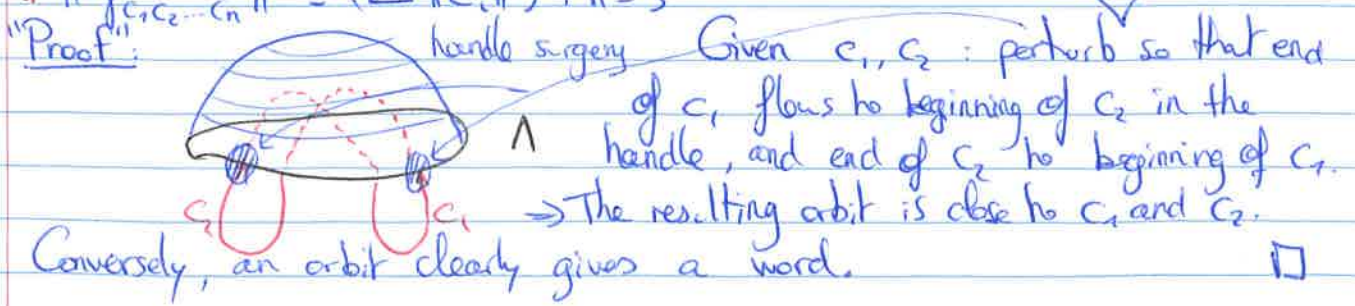 "Proof": handle surgery Given c₁, c₂ : perturb so that end
of c₁ flows to beginning of c₂ in the
Λ handle, and end of c₂ to beginning of c₁.
c₂ c₁ ⇒ The resulting orbit is close to c₁ and c₂.
Conversely, an orbit clearly gives a word. □